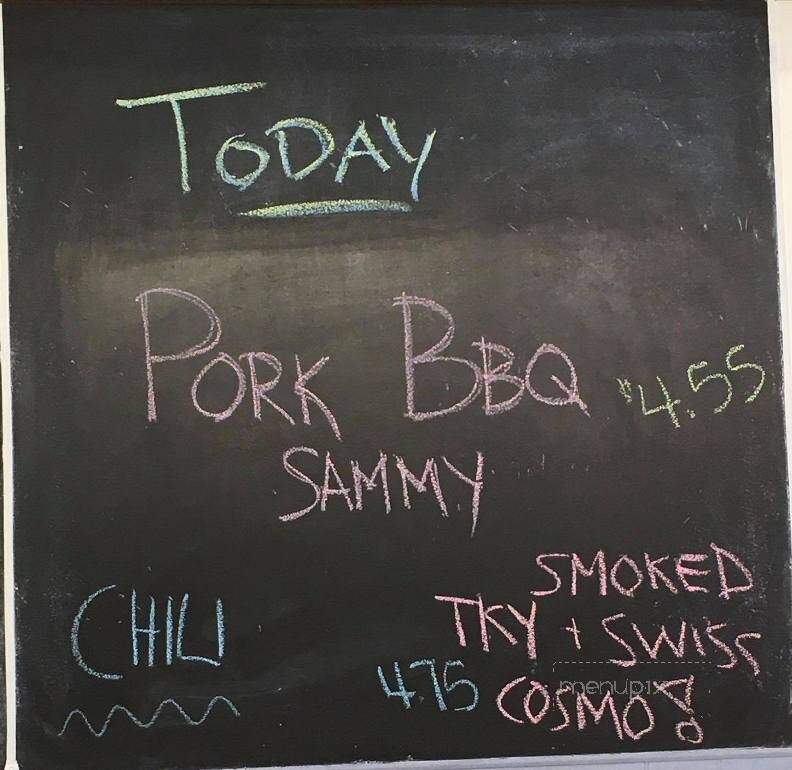 TODAY
PORK BBQ $4.55
SAMMY
CHILI
SMOKED
TKY + SWISS
4.75 COSMO!
menupix